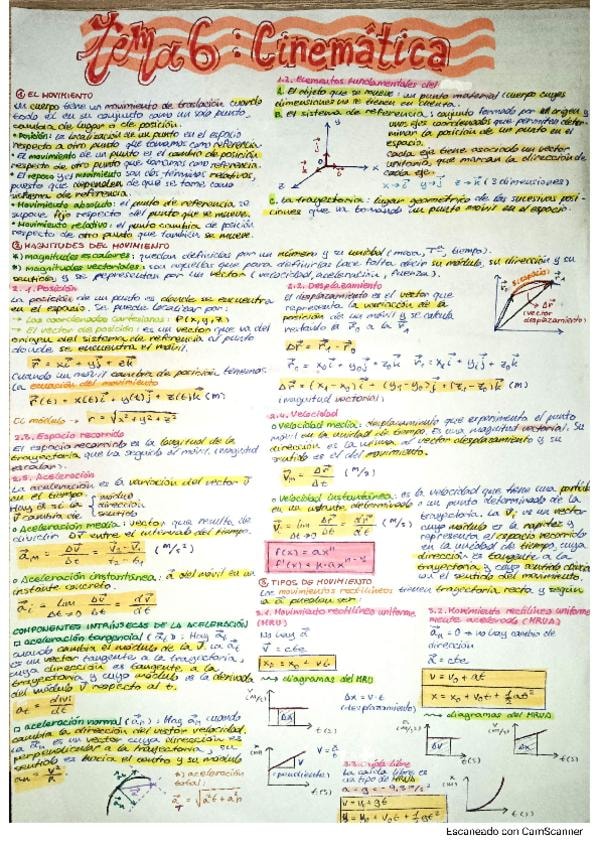 Tema 6 : Cinemática
① EL MOVIMIENTO
Un cuerpo tiene un movimiento de traslación cuando
todo él en su conjunto como un solo punto,
cambia de lugar o de posición.
• Posición: la localización de un punto en el espacio
respecto a otro punto que tomamos como referencia.
• El movimiento de un punto es el cambio de posición
respecto de otro punto que tomamos como referencia.
• El reposo y el movimiento son dos términos relativos,
puesto que dependen de que se tome como
sistema de referencia.
• Movimiento absoluto: el punto de referencia se
supone fijo respecto del punto que se mueve.
• Movimiento relativo: el punto cambia de posición
respecto de otro punto que también se mueve.
1.2. Elementos fundamentales del
A. El objeto que se mueve: un punto material cuerpo cuyas
dimensiones no se tienen en cuenta.
B. El sistema de referencia: conjunto formado por el origen y
unos ejes coordenados que permiten determinar
la posición de un punto en el
espacio.
cada eje tiene asociado un vector
unitario, que marcan la dirección de
cada eje.
x→i y→j z→k (3 dimensiones)
C. La trayectoria: lugar geométrico de las sucesivas posiciones
que va tomando un punto móvil en el espacio.
② MAGNITUDES DEL MOVIMIENTO
*) magnitudes escalares: quedan definidas por un número y su unidad (masa, Tª, tiempo).
*) magnitudes vectoriales: son aquellas que para definirlas hace falta decir su módulo, su dirección y su
sentido y se representan por un vector (velocidad, aceleración, fuerza).
2.1. Posición
La posición de un punto es donde se encuentra
en el espacio. Se puede localizar por:
→ Las coordenadas cartesianas: P(x, y, z)
→ El vector de posición: es un vector que va del
origen del sistema de referencia al punto
donde se encuentra el móvil.
r = xi + yj + zk
Cuando un móvil cambia de posición tenemos:
La ecuación del movimiento
r(t) = x(t)i + y(t)j + z(t)k (m)
El módulo → r = √x²+y²+z²
2.2. Desplazamiento
El desplazamiento es el vector que
representa la variación de la
posición de un móvil y se calcula
restando a r₁ a la
Δr = r₁ - r₀
r₀ = x₀i + y₀j + z₀k r₁ = x₁i + y₁j + z₁k
Δr = (x₁-x₀)i + (y₁-y₀)j + (z₁-z₀)k (m)
(magnitud vectorial)
S: espacio
Δr
(vector
desplazamiento)
2.3. Espacio recorrido
El espacio recorrido es la longitud de la
trayectoria que ha seguido el móvil (magnitud
escalar).
2.4. Velocidad
○ Velocidad media: desplazamiento que experimenta el punto
móvil en la unidad de tiempo. Es una magnitud vectorial. Su
dirección es la misma al vector desplazamiento y su
sentido es el del movimiento.
Vm = Δr/Δt (m/s)
○ Velocidad instantánea: es la velocidad que tiene una partícula
en un instante determinado o un punto determinado de la
trayectoria. La Vi es un vector
cuyo módulo es la rapidez y
representa el espacio recorrido
en la unidad de tiempo, cuya
dirección es tangente a la
trayectoria y cuyo sentido
en el sentido del movimiento.
Vi = lim Δt→0 Δr/Δt = dr/dt (m/s)
f(x) = axⁿ
f'(x) = n·axⁿ⁻¹
2.5. Aceleración
La aceleración es la variación del vector v
en el tiempo.
Hay a si la v cambia de { módulo dirección sentido
○ Aceleración media: vector que resulta de
dividir Δv entre el intervalo del tiempo.
am = Δv/Δt = v₂-v₁/t₂-t₁ (m/s²)
○ Aceleración instantánea: a del móvil en un
instante concreto.
ai = lim Δt→0 Δv/Δt = dv/dt
COMPONENTES INTRÍNSECAS DE LA ACELERACIÓN
□ aceleración tangencial (at): Hay at
cuando cambia el módulo de la v. La at
es un vector tangente a la trayectoria,
cuya dirección es tangente a la
trayectoria y cuyo módulo es la derivada
del módulo v respecto al t.
at = d|v|/dt
□ aceleración normal (an): Hay an cuando
cambia la dirección del vector velocidad.
La an es un vector cuya dirección es
perpendicular a la trayectoria, su
sentido es hacia el centro y su módulo
an = v²/R
*) aceleración
total:
aT = √a²t + a²n
③ TIPOS DE MOVIMIENTO
Los movimientos rectilíneos tienen trayectoria recta y según
la a pueden ser:
3.1. Movimiento rectilíneo uniforme
(MRU)
No hay a
v = cte
x = x₀ + vt
⇝ diagramas del MRU
Δx = v·t
(desplazamiento)
v (m/s)
Δx
t(s)
(pendiente)
t(s)
3.2. Movimiento rectilíneo uniformemente
acelerado (MRUA)
an = 0 → no hay cambio de
dirección
a = cte
v = v₀ + at
x = x₀ + v₀t + ½at²
⇝ diagramas del MRUA
Δv
t(s)
Δx
t(s)
t(s)
3.3. Caída libre
La caída libre es
un tipo de MRUA
a = g = -9,8 m/s²
y = y₀ + v₀t + ½gt²
Escaneado con CamScanner